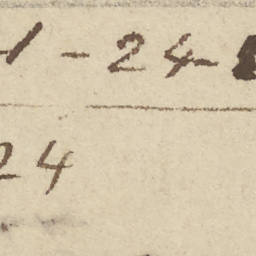 1-24-
24